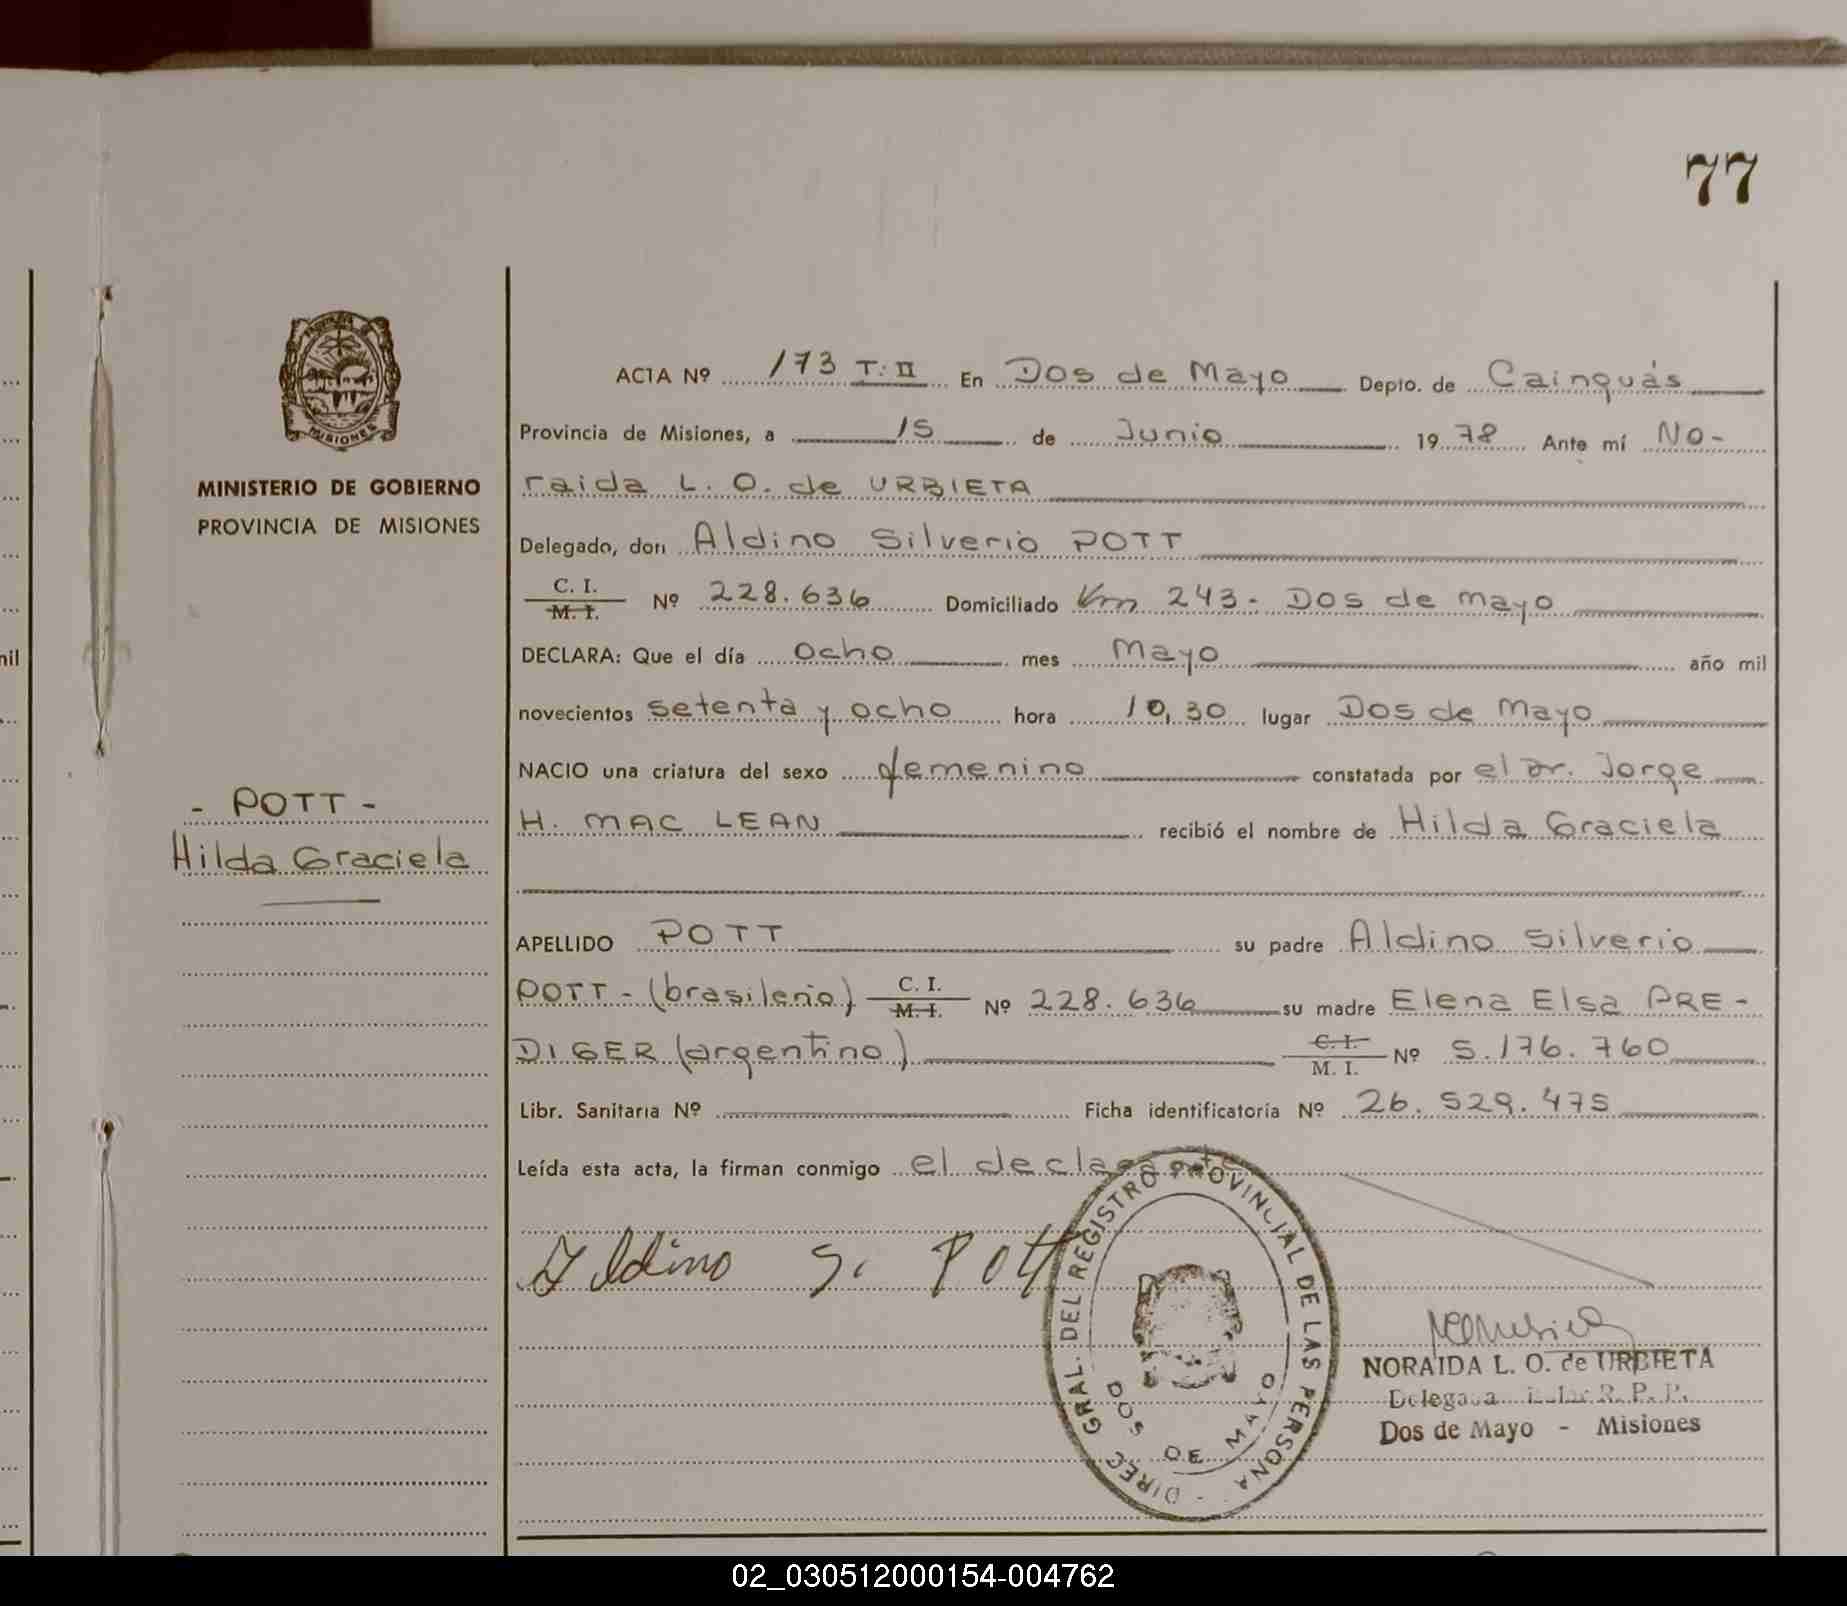 77
PROVINCIA DE
MISIONES
MINISTERIO DE GOBIERNO
PROVINCIA DE MISIONES
- POTT -
Hilda Graciela
ACTA Nº 173 T: II En Dos de Mayo Depto. de Cainguás
Provincia de Misiones, a 15 de Junio 1978 Ante mí No-
raida L. O. de URBIETA
Delegado, don Aldino Silverio POTT
C. I.
M. I. Nº 228.636 Domiciliado Km 243- Dos de mayo
DECLARA: Que el día ocho mes Mayo año mil
novecientos setenta y ocho hora 10,30 lugar Dos de Mayo
NACIO una criatura del sexo femenino constatada por el Dr. Jorge
H. MAC LEAN recibió el nombre de Hilda Graciela
APELLIDO POTT su padre Aldino Silverio
POTT - (brasilerio) C. I. M. I. Nº 228.636 su madre Elena Elsa PRE-
DIGER (argentino) C. I. M. I. Nº 5.176.760
Libr. Sanitaria Nº Ficha identificatoria Nº 26.529.475
Leída esta acta, la firman conmigo el declarante
Aldino S. Pott
DIREC. GRAL. DEL REGISTRO PROVINCIAL DE LAS PERSONA -
DOS DE MAYO
NORAIDA L. O. de URBIETA
Delegada R. P. P.
Dos de Mayo - Misiones
mil
02_030512000154-004762